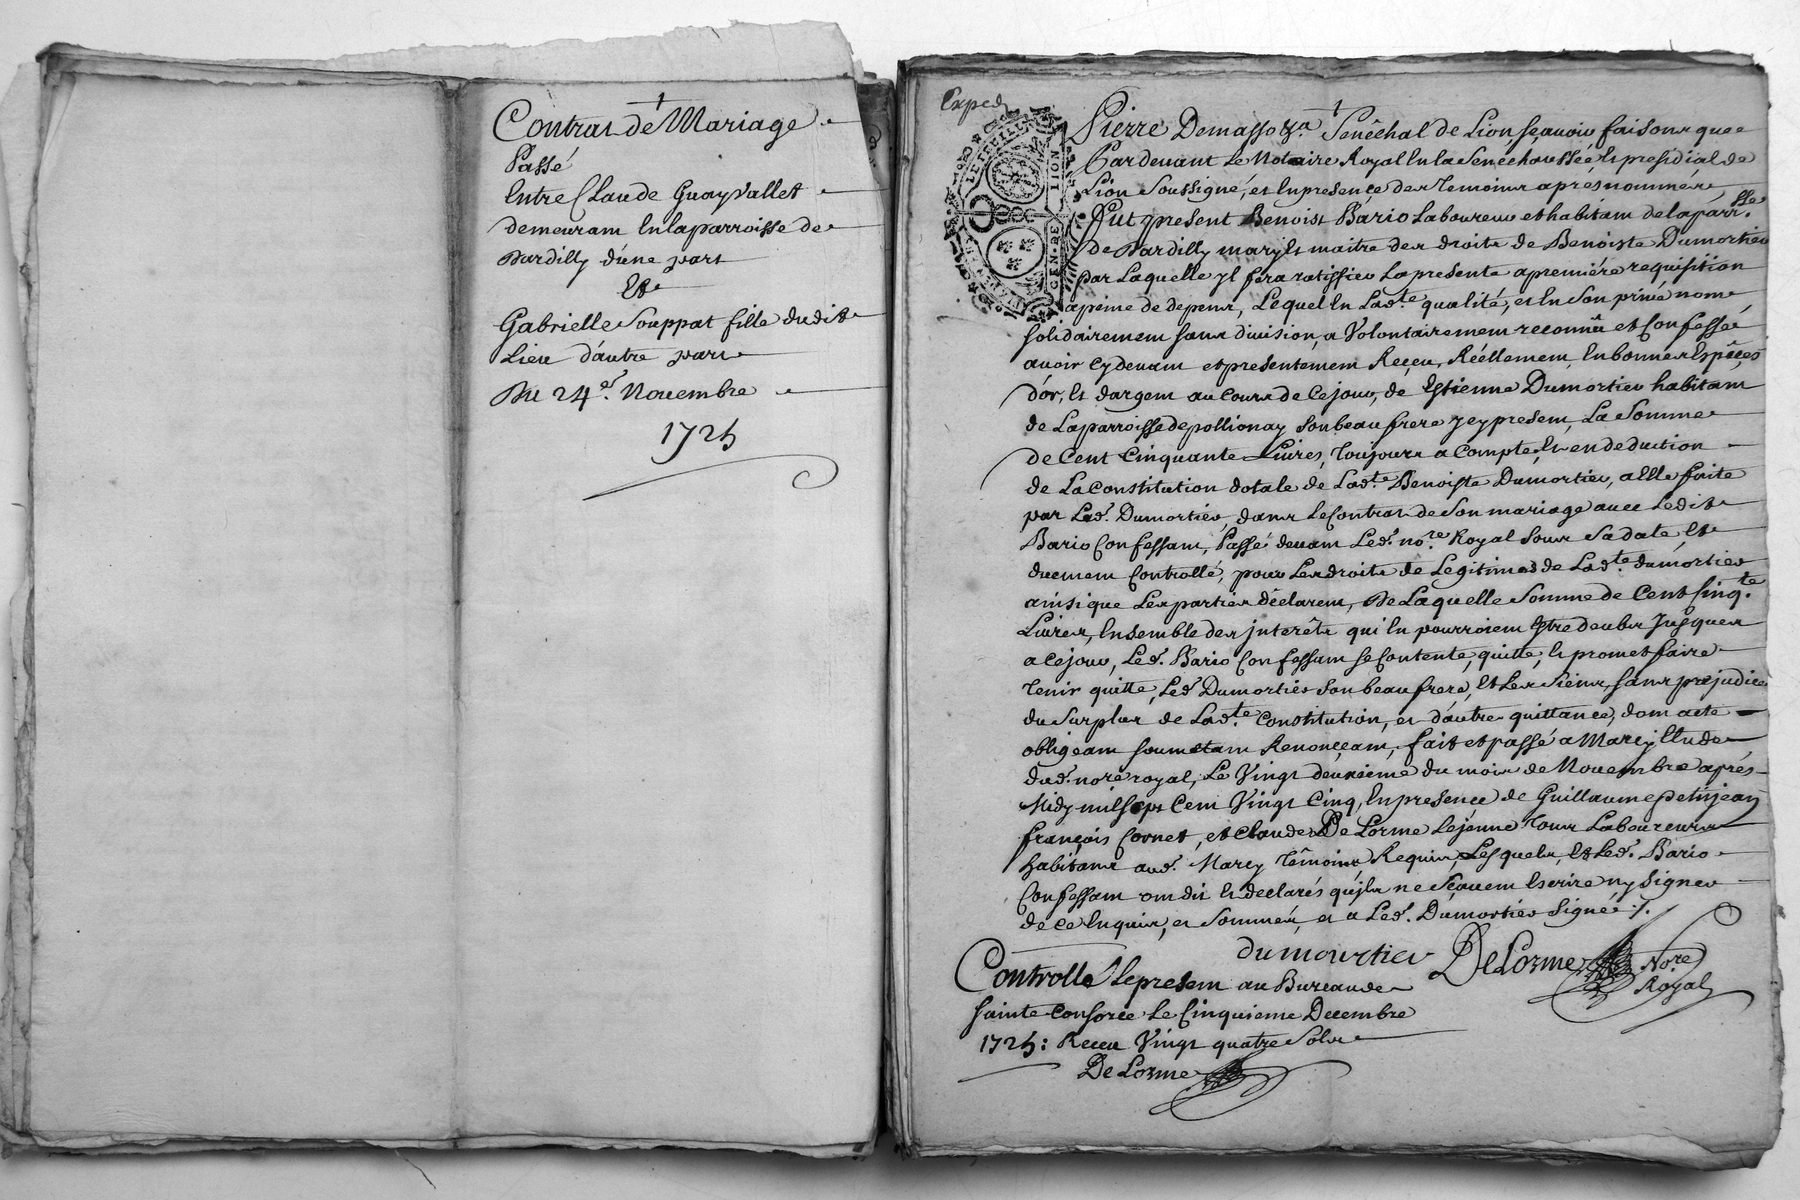 Contrat de Mariage
Passé
Entre Claude Guay Vallet
demeurant en la parroisse de
Dardilly d'une part
Et
Gabrielle Souppat fille dudit
Lieu d'autre part
Du 24e. Novembre
1725
Exped
LION
GEN DE
Pierre Demasso Senêchal de Lion, sçavoir faisons que
Pardevant Le Notaire Royal En la Senéchaussée Et presidial de
Lion Soussigné, et En presence des temoins aprés nommés,
Fut present Benoist Bário Laboureur et habitant de la parrsse.
de Dardilly mary Et maitre des droits de Benoiste Dumortier
par Laquelle yl fera ratiffier La presente a premiére requisition
a peine de depens, Lequel En Ladte. qualité, et En Son privé nom
solidairement sans division, a Volontairement reconnû et Confessé
avoir Cy devant et presentement Reçeu, Réellement, En bonnes Espêces
d'or, Et d'argent au Cours de Ce jour, de Estienne Dumortier habitant
de La parroisse de pollionay son beau frere ycy present, La Somme
de Cent Cinquante Livres, toujours a Compte, Et en deduction
de La Constitution dotale de Ladte. Benoiste Dumortier, a Elle faite
par Led. Dumortier, dans Le Contrat de Son mariage avec Ledit
Bario Confessant, Passé devant Led. nore. Royal Sous Sa date, Et
duement Controllé, pour Les droits de Legitimes de Ladte. dumortier
ainsi que Les parties déclarent, De Laquelle Somme de Cent Cinqte.
Livres, Ensemble des jnterêts qui En pourroient Estre deubs Jusques
a Ce jour, Led. Bario Confessant se Contente, quitte, Et promet faire
tenir quitte, Led. Dumortier Son beau frere, Et Les Siens, sans prejudice
du Surplus de Ladte. Constitution, et d'autre quittance, dont acte
obligeant soumetant Renonçeant, fait et passé a Marcy Etude
dud. nore royal, Le Vingt deuxieme du mois de Novembre aprés
Midy mil Sept Cent Vingt Cinq, En presence de Guillaume petitjean
françois Cornet, et Claude De Lorme Lejeune tous Laboureurs
habitans aud. Marcy témoins Requis, Lesquels, Et Led. Bario
Confessant ont dit Et declarés qu'jls ne Sçavent Escrire ny Signer
de ce Enquis, et Sommés, et a Led. Dumortier Signé ./.
dumourtier DeLorme Nore
Royal
Controllé Le present au Bureau de
Sainte Consorce Le Cinquieme Decembre
1725: Reçeu Vingt quatre Sols
DeLorme